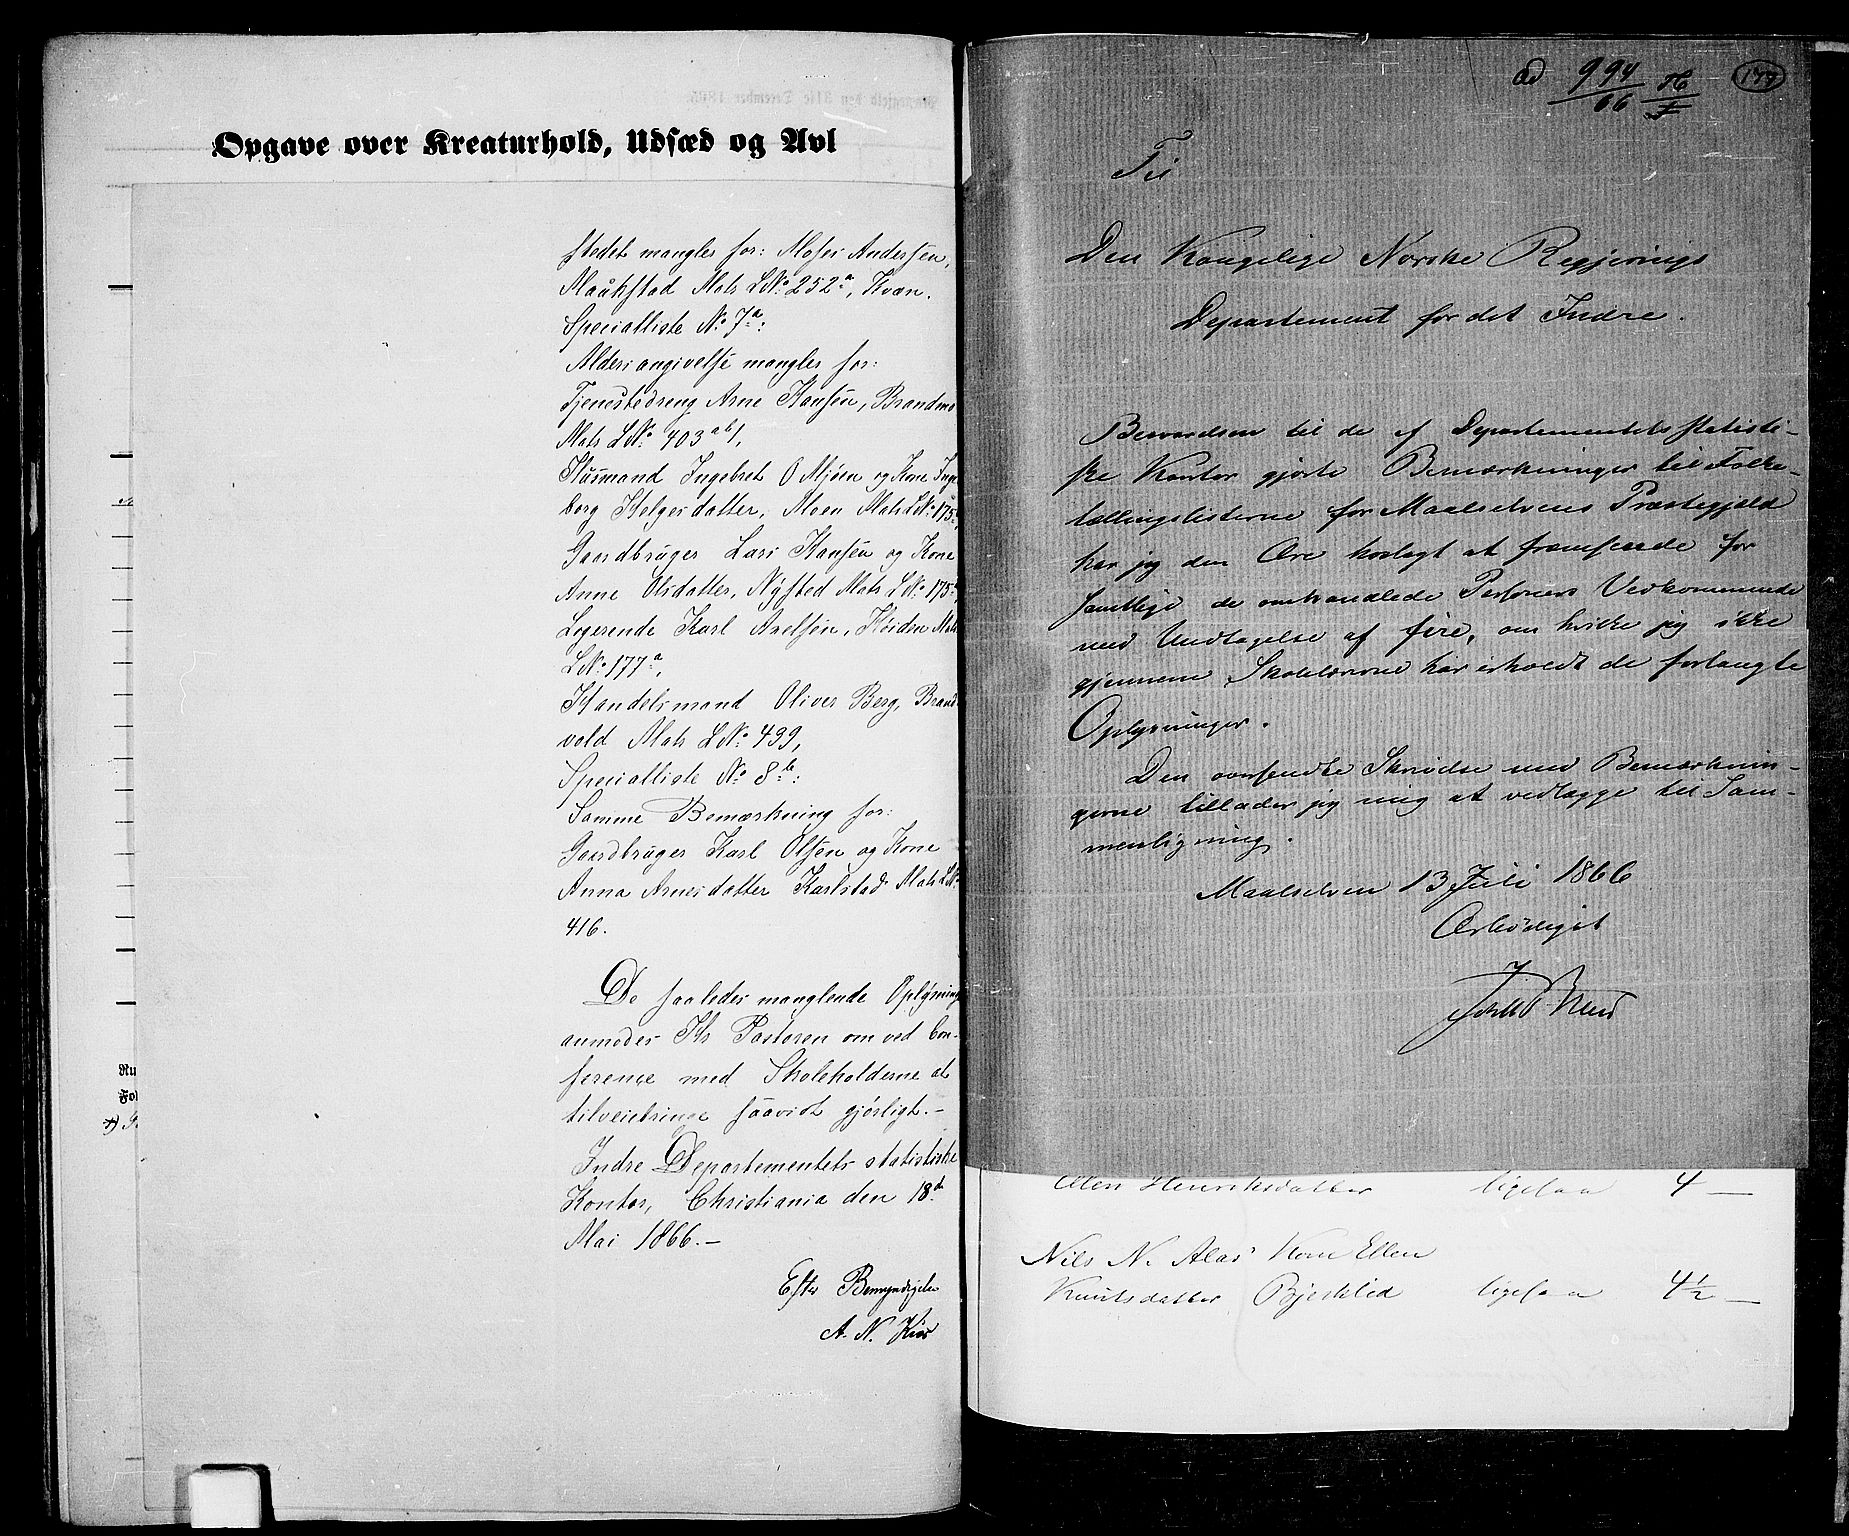 Opgave over Kreaturhold, Udsæd og Avl
stedet mangles for: Moses Andersen,
Maakstad Mats LNo 252a, Kvæn.
Specialliste No 7a:
Aldersangivelse mangles for:
Tjenestedreng Arne Hansen, Brandmo
Mats LNo 403ab1,
Husmand Ingebret O Mjøen og Kone Inge
borg Helgesdatter, Moen Mats LNo 175
Gaardbruger Lars Hansen og Kone
Anne Olsdatter, Nysted Mats LNo 175
Logerende Karl Axelsen, Høidsn Mats
LNo 177a,
Handelsmand Oliver Berg, Brand
vold Mats LNo 499,
Specialliste No 8b:
Samme Bemærkning for:
Gaardbruger Karl Olsen og Kone
Anna Arnesdatter Karlstad Mats LNo
416.
De saaledes manglende Oplysning
anmodes Hr Pastoren om ved Con-
ference med Skoleholderne at
tilveiebringe saavidt gjørligt.-
Indre Departementets statistiske
Kontor, Christiania den 18de
Mai 1866.-
Efter Bemyndigelse
A. N. Kiær
Ru
Fol
ad 994/66
177
Til
Den Kongelige Norske Regjerings
Departement for det Indre.
Besvarelsen til de af Departementets statisti-
ske Kontor gjorte Bemærkninger til Folke-
tællingslisterne for Maalselvens Præstegjeld
har jeg den Ære hoslagt at fremsende for
samtlige de omhandlede Personers Vedkommende
med Undtagelse af fire, om hvilke jeg ikke
gjennem Skolelærerne har erholdt de forlangte
Oplysninger.
Den oversendte Skrivelse med Bemærknin-
gerne tillader jeg mig at vedlægge til Sam-
menligning.
Maalselven 13 Juli 1866
Ærbødigst
Ellen Henriksdatter ligesaa 4 —
Nils N. Aas Kone Ellen
Knutsdatter Bjerklid ligesaa 4 1/2 —